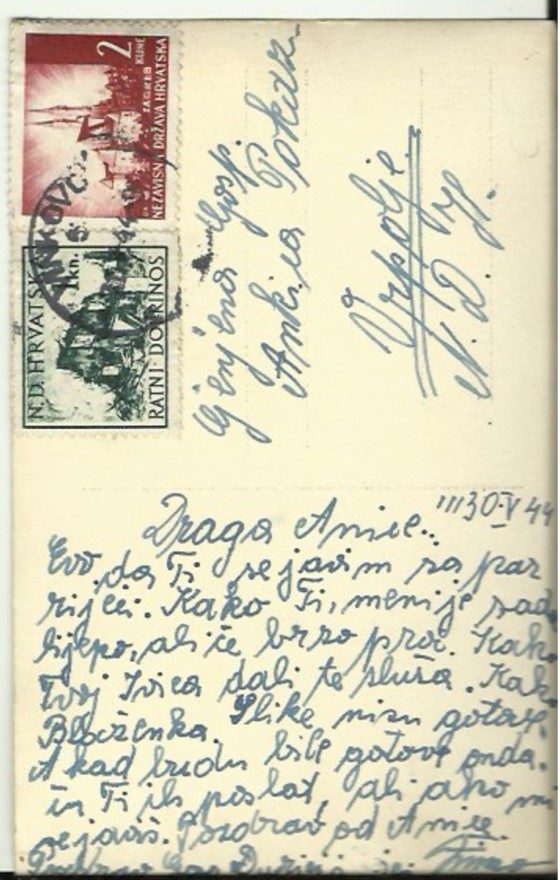 2
KUNE
ZAGREB
NEZAVISNA DRŽAVA HRVATSKA
N.D. HRVATSKA
1 kn.
RATNI DOPRINOS
Cjenjena Gosp.
Ankica
Vrpolje
N. D. H.
30-V 44
Draga Anice..
Evo da Ti se javim sa par
riječi. Kako Ti, meni je sad
lijepo, ali će brzo proć. Kako
Tvoj Ivica dali te sluša. Kak
Blaženka. Slike nisu gotove
A kad budu bile gotove onda
ću Ti ih poslat, ali ako mi
se javiš. Pozdrav od Anice.